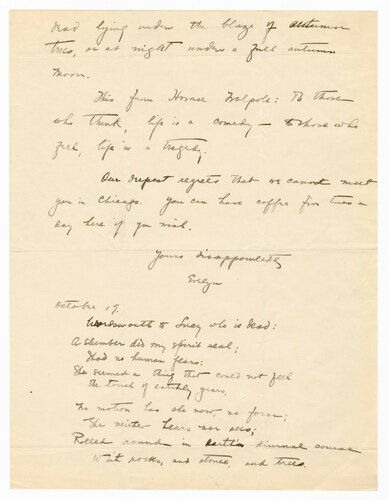 dead lying under the blaze of autumn
trees, or at night under a full autumn
moon.
This from Horace Walpole: To those
who think, life is a comedy – to those who
feel, life is a tragedy.
Our deepest regrets that we cannot meet
you in Chicago. You can have coffee five times a
day here if you wish.
Yours disappointedly
Evelyn
October 19.
Wordsworth to Lucy who is dead:
A slumber did my spirit seal;
I had no human fears:
She seemed a thing that could not feel
the touch of earthly years.
No motion has she now, no force;
She neither hears nor sees;
Rolled round in earth's diurnal course
With rocks, and stones, and trees.